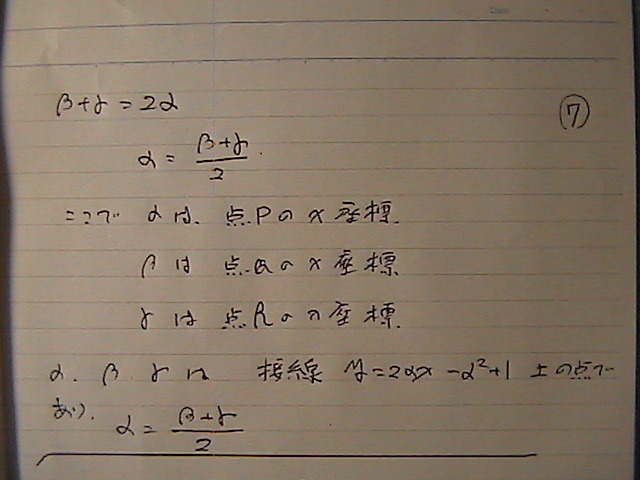 ⑦
β+γ=2α
α = (β+γ)/2.
ここで αは、点Pのx座標.
βは 点Qのx座標
γは 点Rのx座標.
α. β. γは 接線 y=2αx-α²+1 上の点で
あり. α = (β+γ)/2